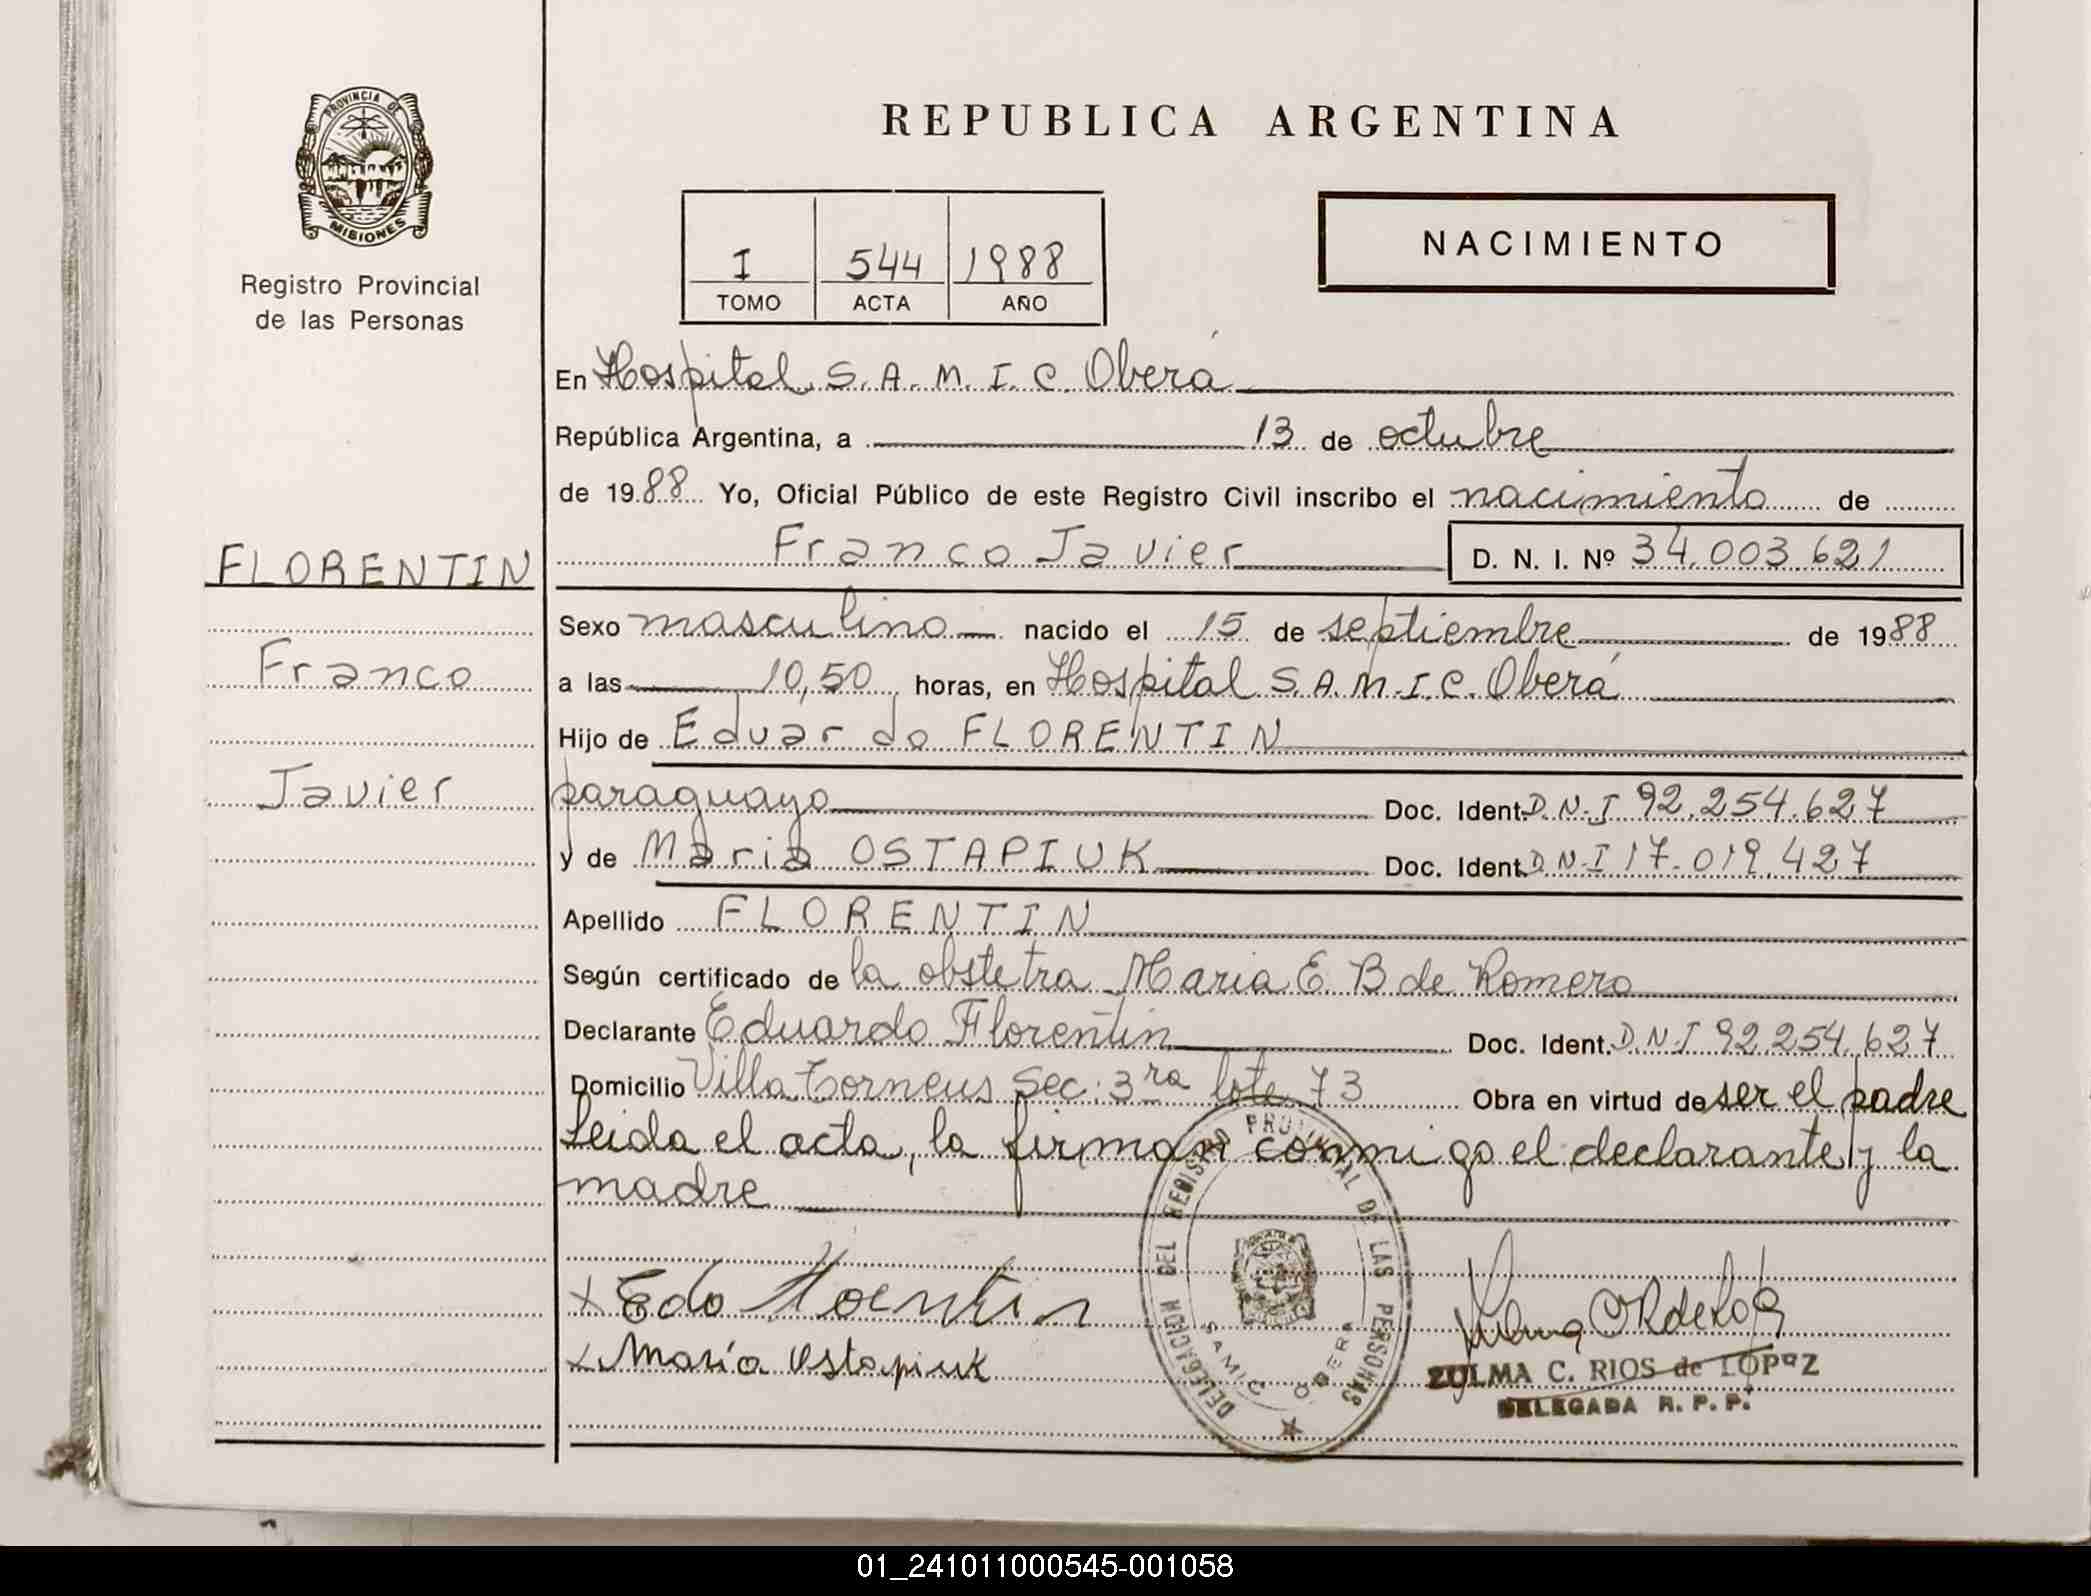 PROVINCIA DE
MISIONES
Registro Provincial
de las Personas
REPUBLICA ARGENTINA
I 544 1988
TOMO ACTA AÑO
NACIMIENTO
En Hospital S.A.M.I.C. Oberá
República Argentina, a 13 de octubre
de 1988 Yo, Oficial Público de este Registro Civil inscribo el nacimiento de
FLORENTIN
Franco Javier D. N. I. Nº 34.003.621
Sexo masculino nacido el 15 de septiembre de 1988
Franco
a las 10,50 horas, en Hospital S.A.M.I.C. Oberá
Hijo de Eduardo FLORENTIN
Javier
paraguayo Doc. Ident. D.N.I 92.254.627
y de Maria OSTAPIUK Doc. Ident. D.N.I 17.019.427
Apellido FLORENTIN
Según certificado de la obstetra Maria E. B de Romero
Declarante Eduardo Florentin Doc. Ident. D.N.I 92.254.627
Domicilio Villa Sec. 3ra lote 73 Obra en virtud de ser el padre
Leida el acta, la firman conmigo el declarante y la
madre
DELEGACION DEL REGISTRO PROVINCIAL DE LAS PERSONAS
SAMIC OBERA
x Edo Florentin
x Maria Ostapiuk
ZULMA C. RIOS de LOPEZ
DELEGADA R. P. P.
01_241011000545-001058